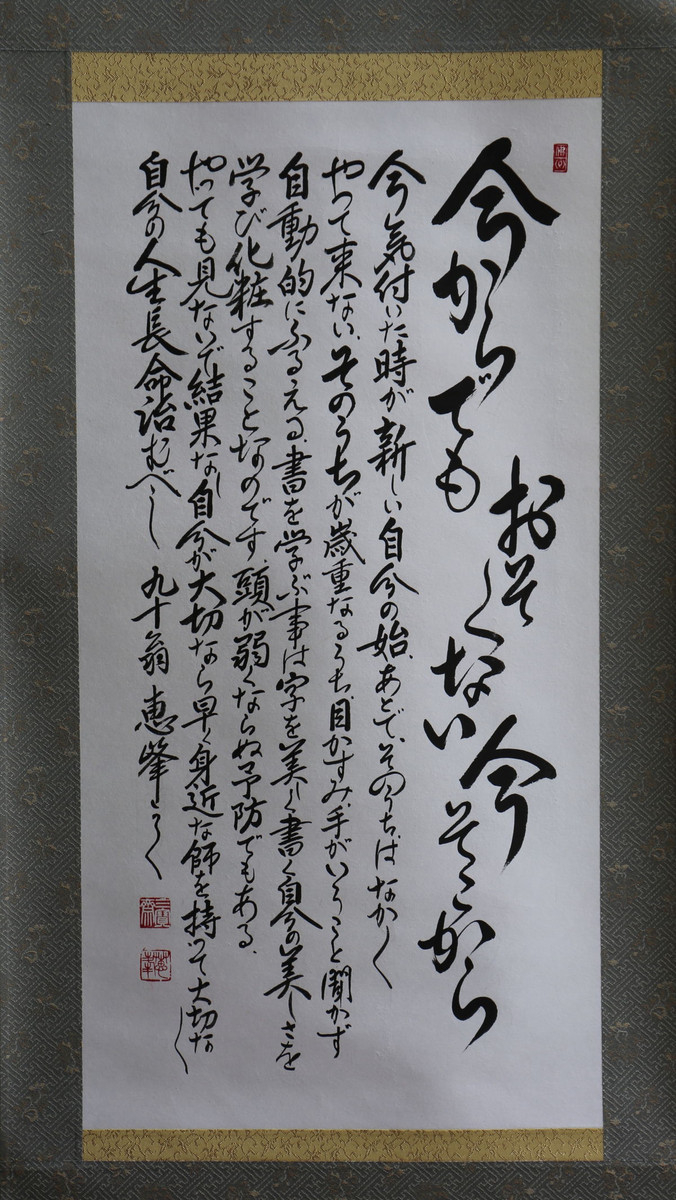 今からでも
おそくない今そこから
今気付いた時が新しい自分の始、あとで、そのうち、はなかく
やって来ない、そのうちが歳重なるうち、目かすみ、手がいうこと聞かず
自動的にふるえる、書を学ぶ事は字を美しく書く自分の美しさを
学び化粧することなのです 頭が弱くならぬ予防でもある、
やっても見ないで結果なし自分が大切なら早く身近な師を持って大切な
自分の人生長命治むべし 九十翁 恵峰かく